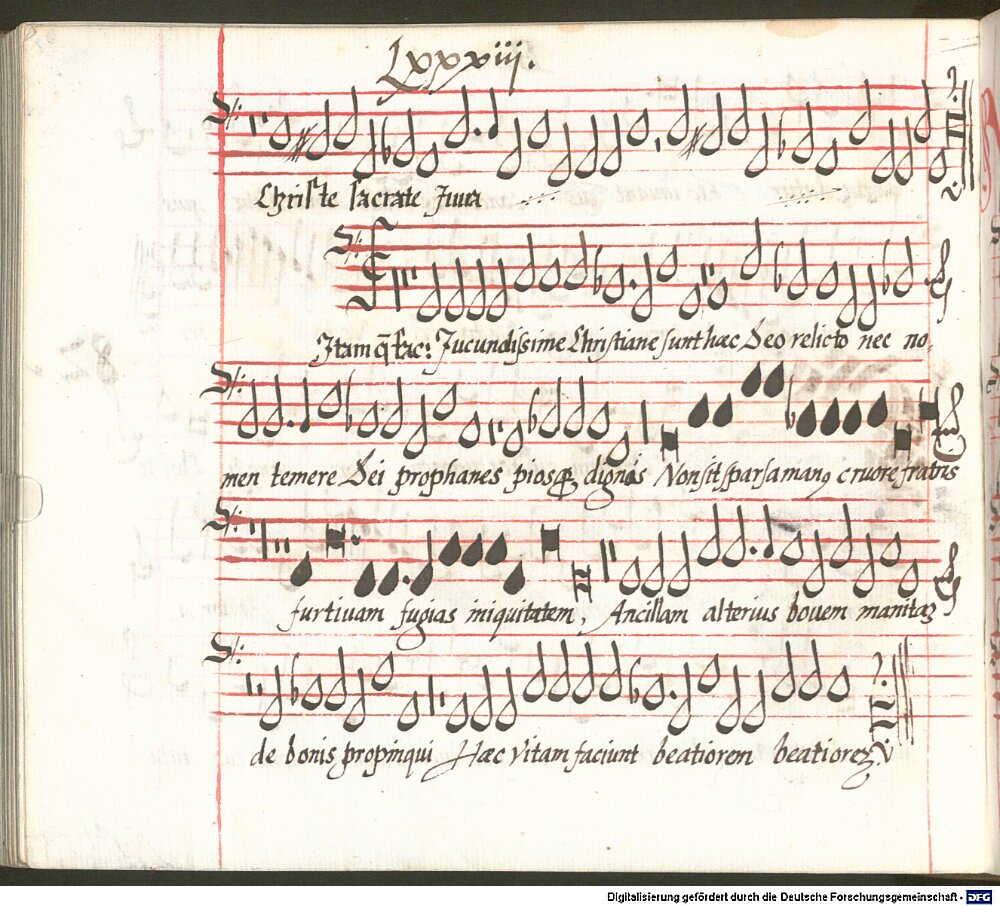 Lxxxiij.
Christe sacrate Juva
Jtam q̃ fac: Jucundissime Christiane sunt hæc Deo relicto nec no-
men temere Dei prophanes piosqꝫ dignos Non sit sparsa manꝰ cruore fratris
furtivam fugias iniquitatem, Ancillam alterius bovem manitaꝫ
de bonis propinqui Hæc Vitam faciunt beatiorem beatioreꝫ
Digitalisierung gefördert durch die Deutsche Forschungsgemeinschaft - DFG